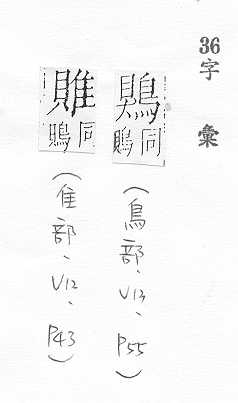 36字彙
鶪
同鵙
(鳥部、V13、P55)
同鵙
(隹部、V12、P43)